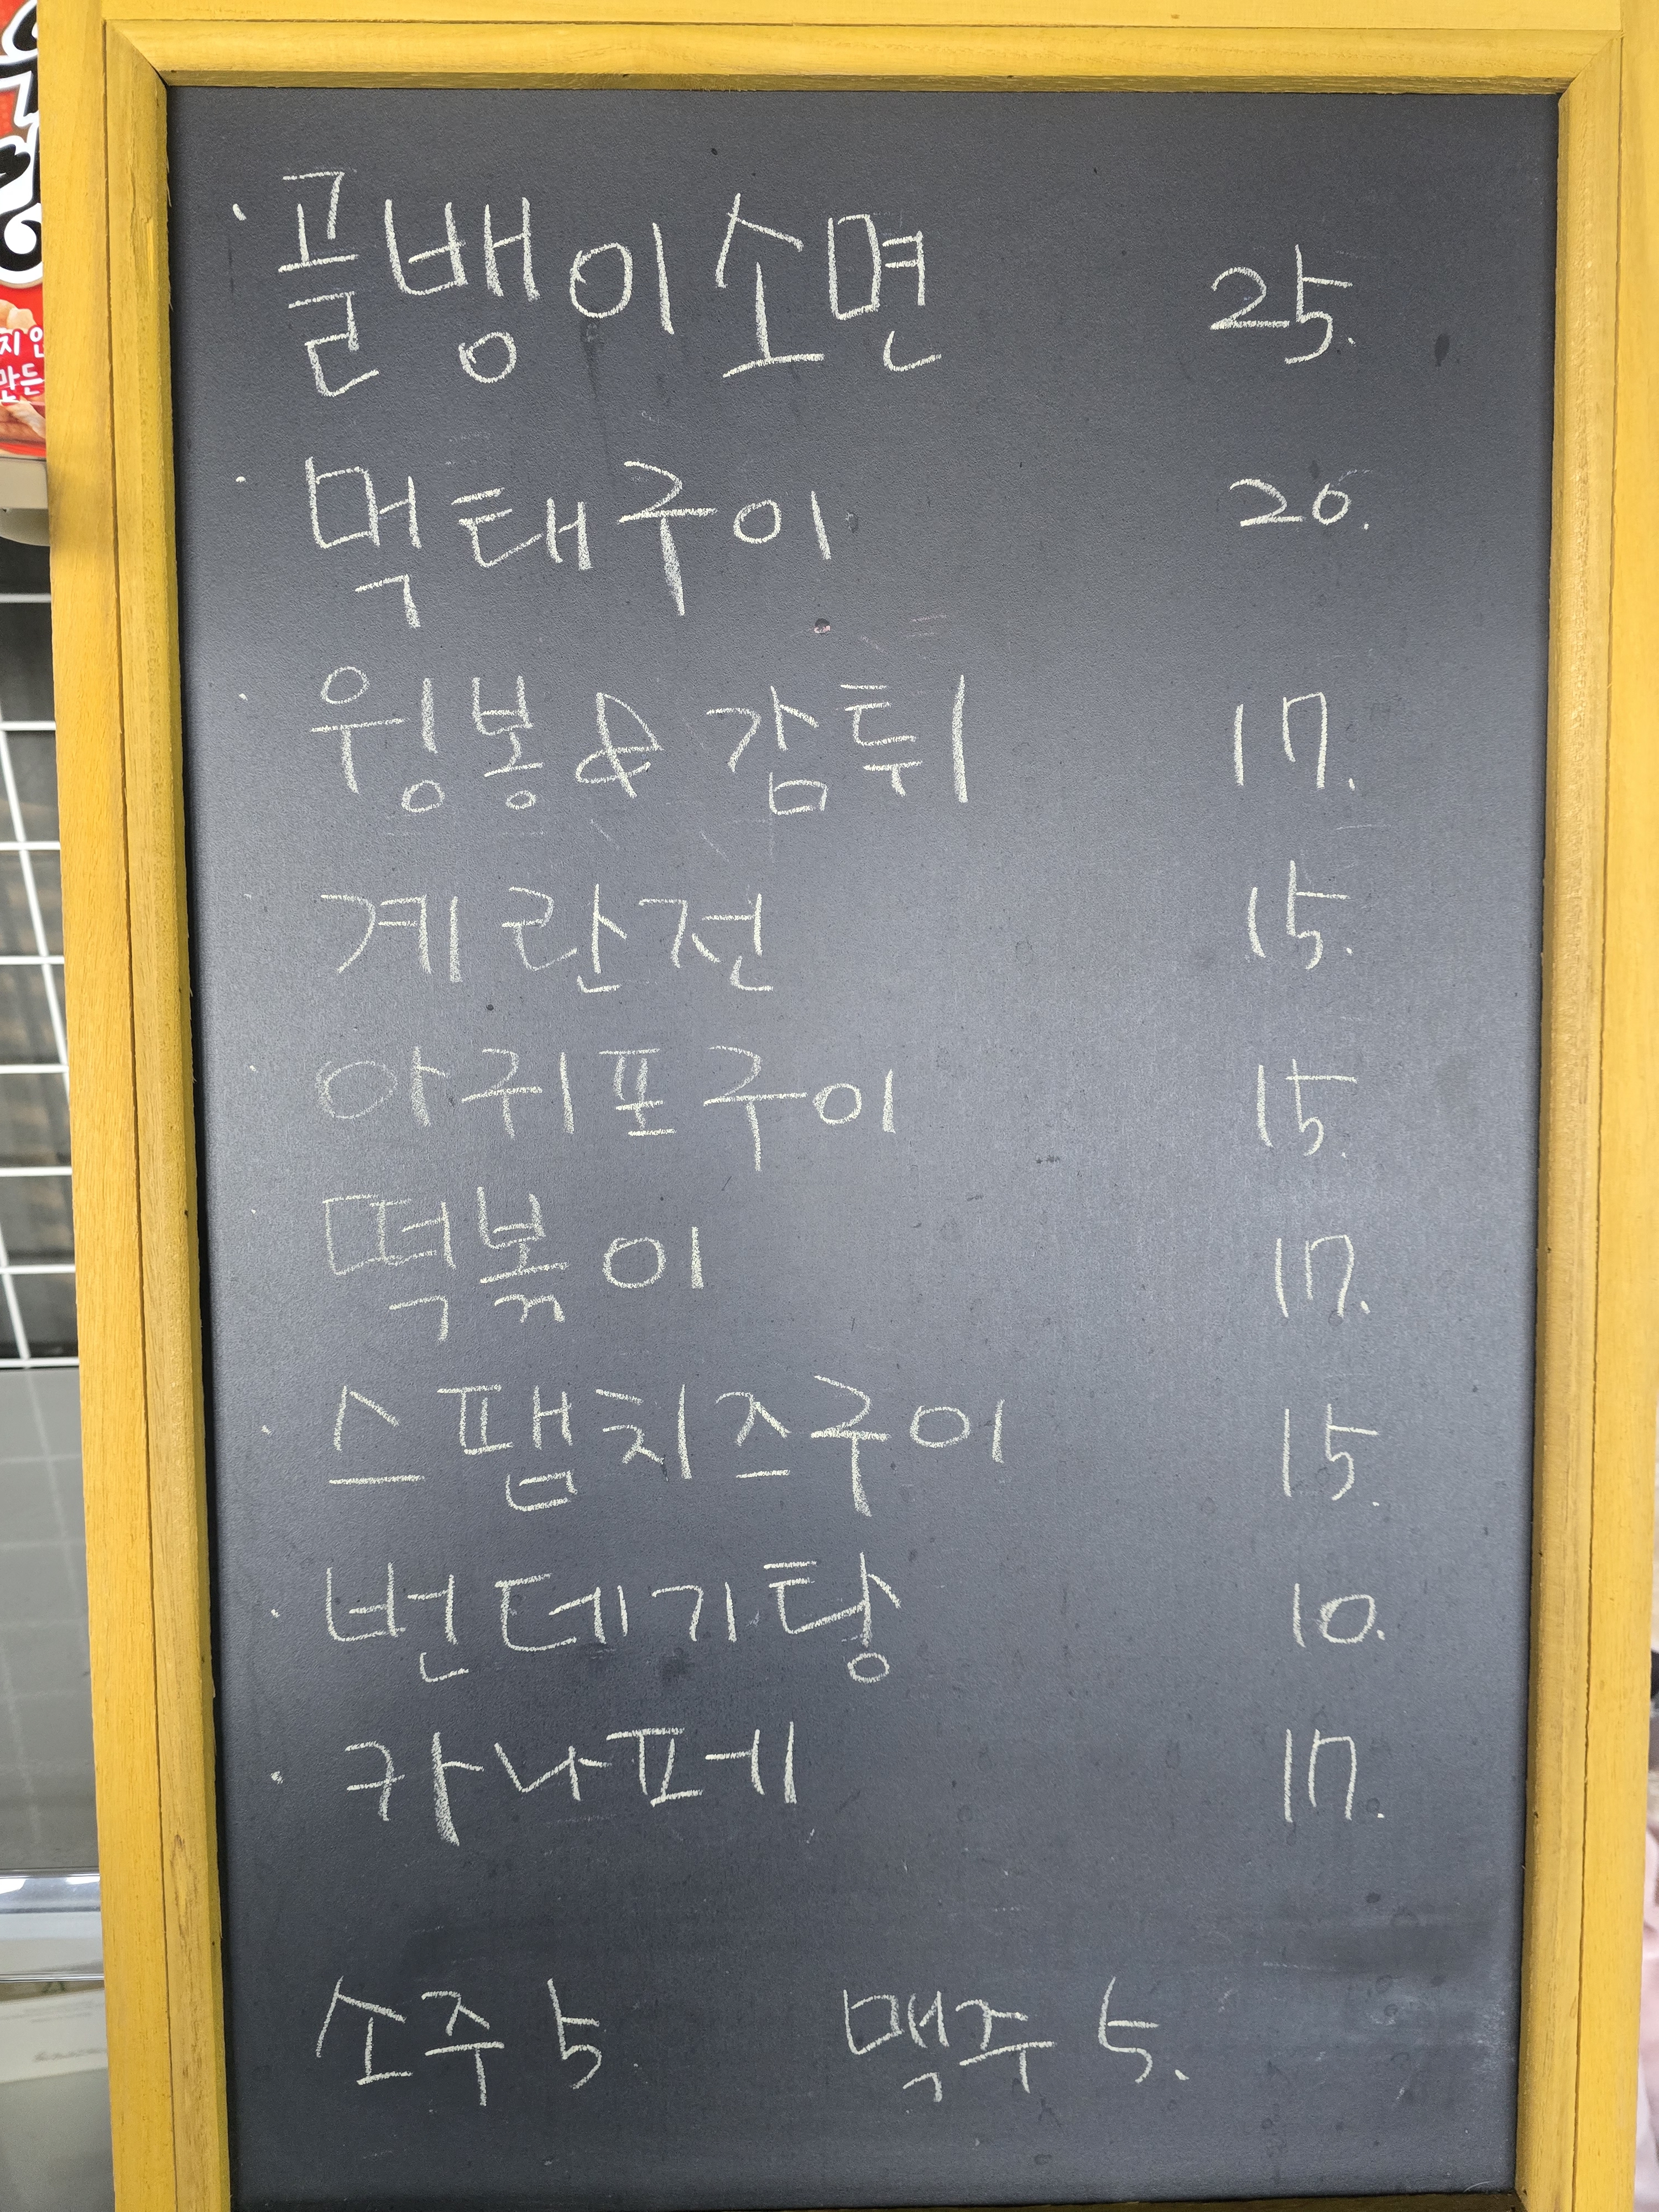 · 골뱅이소면 25.
· 먹태구이 20.
· 윙봉&감튀 17.
· 계란전 15.
· 아귀포구이 15.
· 떡볶이 17.
· 스팸치즈구이 15.
· 번데기탕 10.
· 카나페 17.
소주 5 맥주 5.